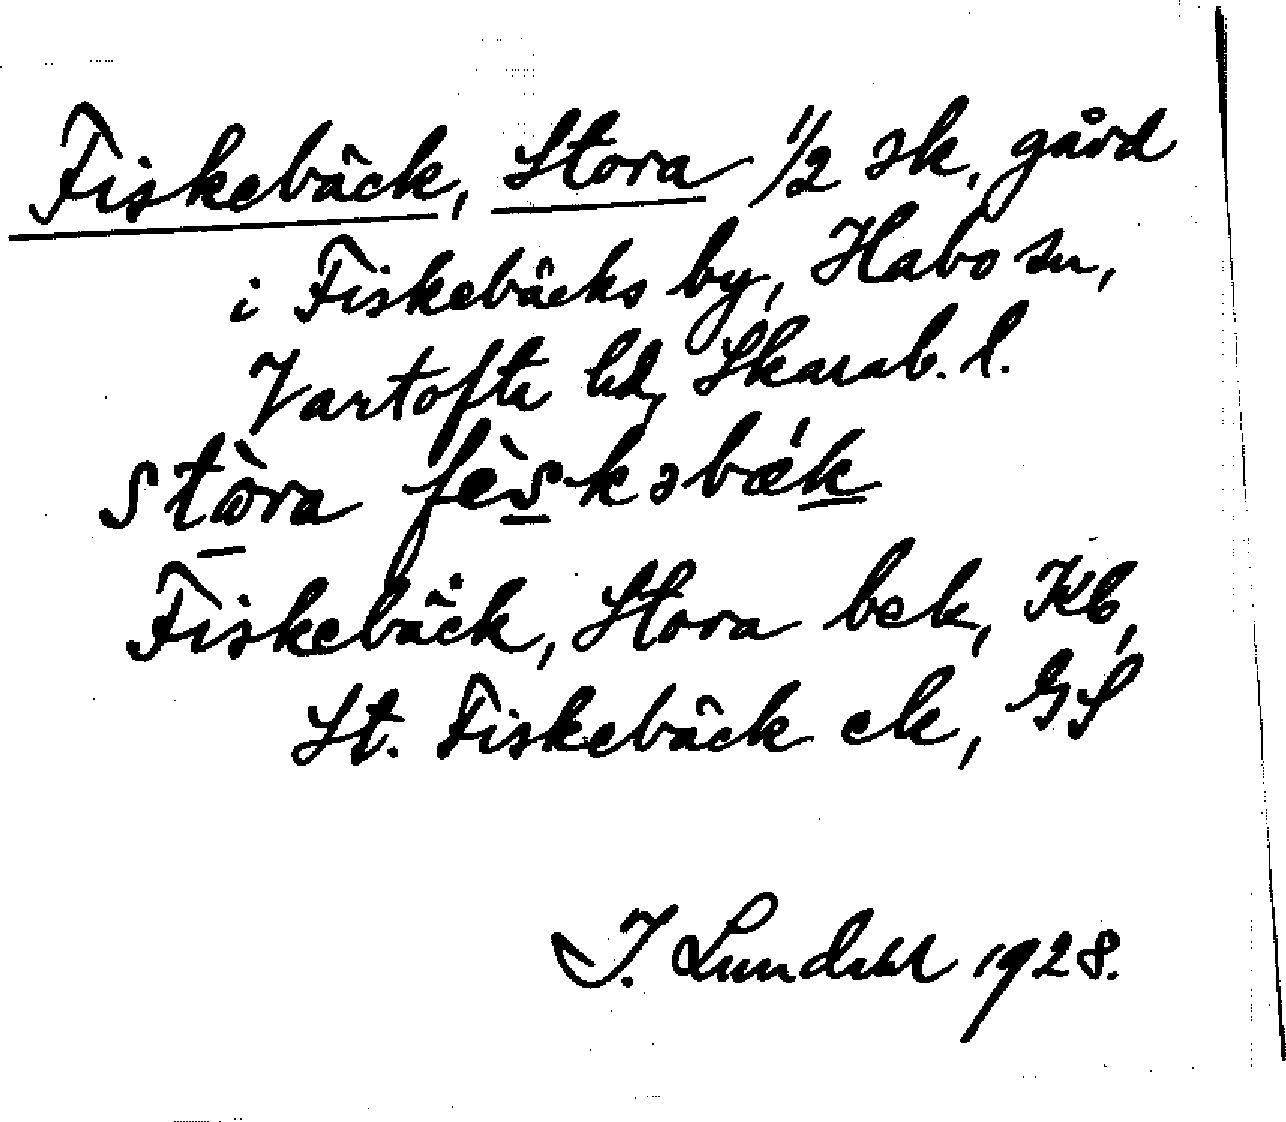 Fiskebäck, Stora 1/2 sk, gård
i Fiskebäcks by, Habo sn,
Vartofta hd, Skarab. l.
stɷ̀ra fès·kəbǽk
Fiskebäck, Stora bek, Kb,
St. Fiskebäck ek, GS
I. Lundahl 1928.